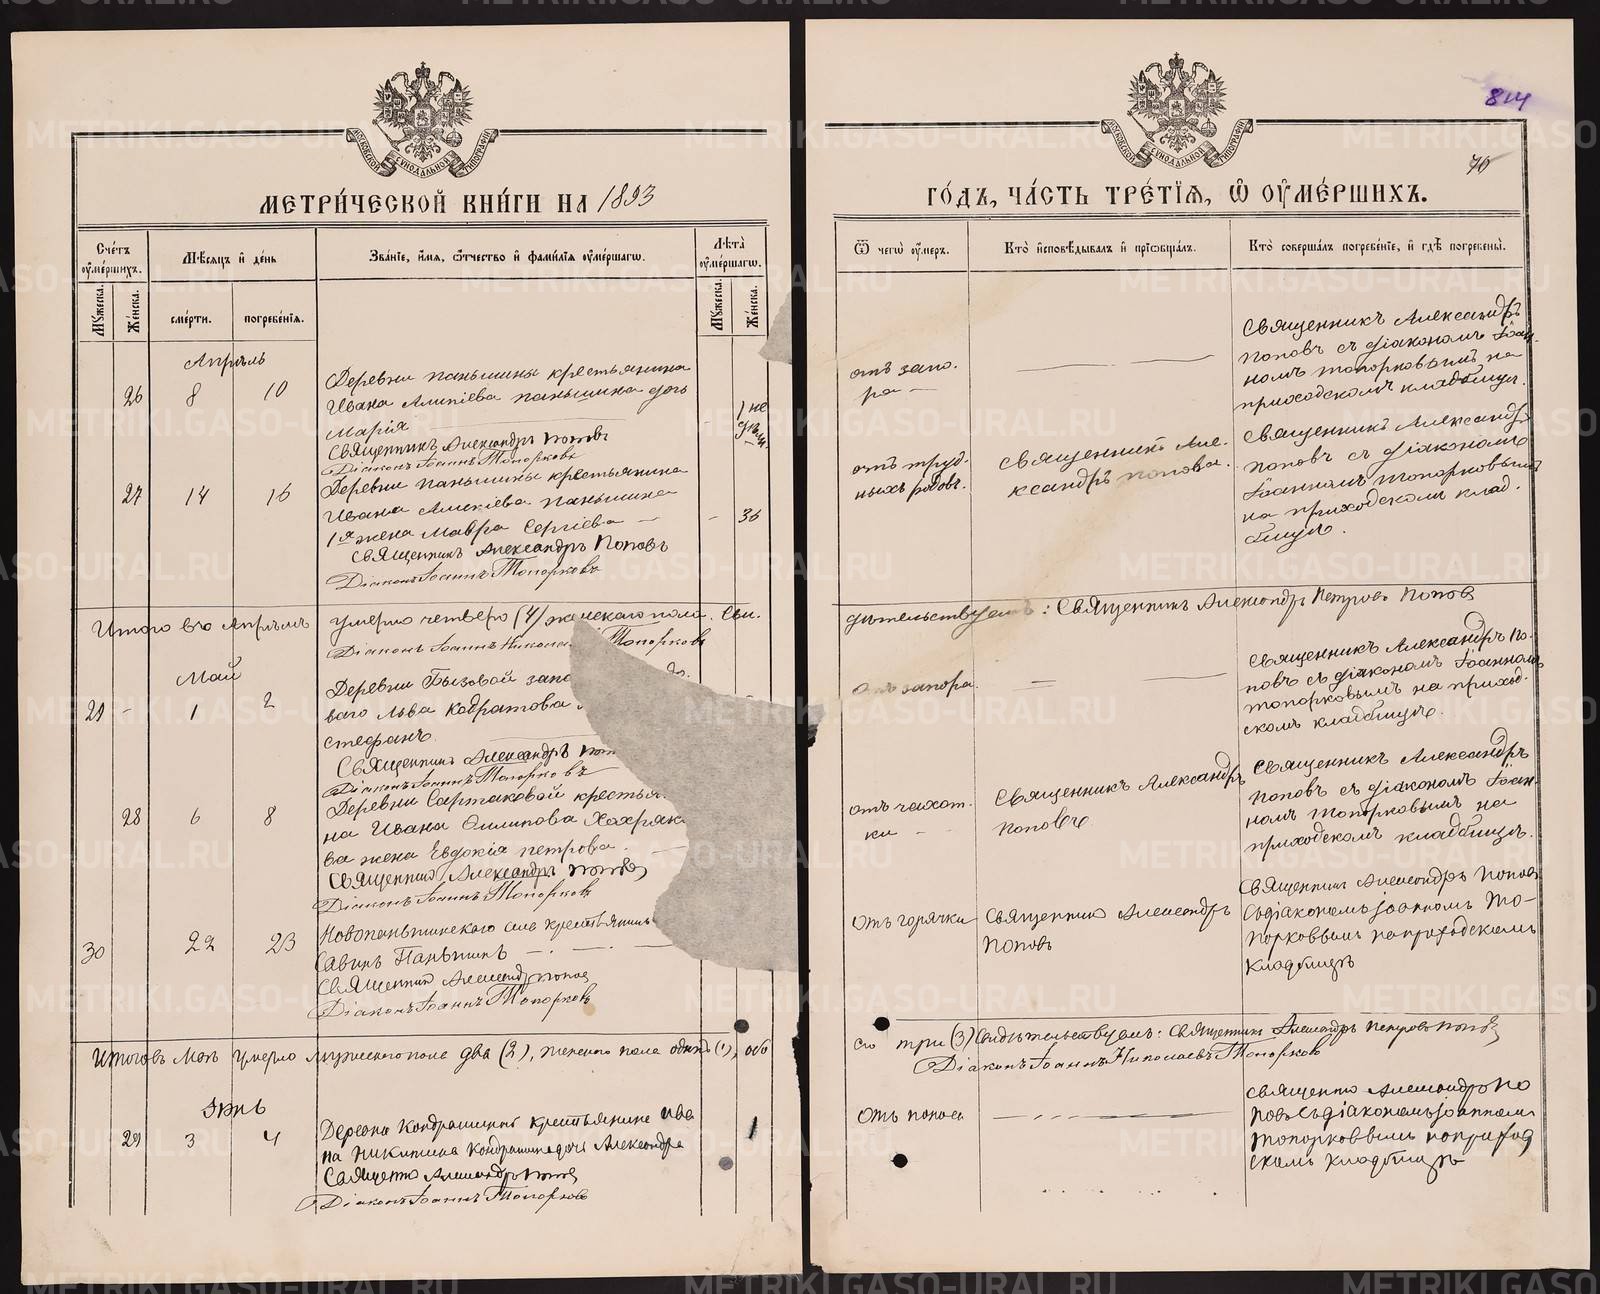 814
76
МОСКОВСКОЙ СѴНОДАЛЬНОЙ ТИПОГРАФІИ
МЕТРИ́ЧЕСКОЙ КНИ́ГИ НА 1893
Сче́тъ ᲂу҆ме́ршихъ.
Мѣ́сяцъ и҆ де́нь
Зва́нїе, и҆́мя, ѻ҆́тчество и҆ фами́лїя ᲂу҆ме́ршагѡ.
Лѣ́та ᲂу҆ме́ршагѡ.
Мꙋ́жеска.
Же́нска.
сме́рти.
погребе́нїя.
Мꙋ́жеска.
Же́нска.
Апрѣль
26 8 10
Деревни Паньшины крестьянина
Ивана Алипіева Паньшина дочь
Марія
1 не
Священникъ Александръ Поповъ
Діаконъ Іоаннъ Топорковъ
27 14 16
Деревни Паньшины крестьянина
Ивана Алипіева Паньшина
1я жена Мавра Сергіева —
- 36
Священникъ Александръ Поповъ
Діаконъ Іоаннъ Топорковъ
Итого въ Апрѣлѣ умерло четверо (4) женскаго пола. Сви-
Діаконъ Іоаннъ Топорковъ
Май
29 - 1 2
Деревни Бызовой запа
ваго Льва Кодратова
Стефанъ
Священникъ Александръ
Діаконъ Іоаннъ Топорковъ
28 6 8
Деревни Сартаковой крестьян
на Ивана Филипова Хахряко
ва жена Евдокія Петрова.
Священникъ Александръ Поповъ
Діаконъ Іоаннъ Топорковъ
30 22 23
Новопаньшинскаго села крестьянинъ
Савинъ Паньшинъ —
Священникъ Александръ Поповъ
Діаконъ Іоаннъ Топорковъ
Итого въ Маѣ умерло мужескаго пола два (2), женскаго пола одна (1), обо
Іюнь
29 3 4
Деревни Кондрашиной крестьянина Ива
на Никитина Кондрашина дочь Александра
1
Священникъ Александръ Поповъ
Діаконъ Іоаннъ Топорковъ
МОСКОВСКОЙ СѴНОДАЛЬНОЙ ТИПОГРАФІИ
ГО́ДЪ, ЧА́СТЬ ТРЕ́ТЇѦ, Ѡ҆ ОУ҆МЕ́РШИХЪ.
Ѿ чегѡ̀ ᲂу҆́меръ.
Кто̀ и҆сповѣ́дывалъ и҆ прїѡбща́лъ.
Кто̀ соверша́лъ погребе́нїе, и҆ гдѣ̀ погребены̀.
отъ запо-
ра —
Священникъ Александръ
Поповъ съ діакономъ Іоан-
номъ Топорковымъ на
приходскомъ кладбищѣ.
отъ труд-
ныхъ родовъ.
Священникъ Але-
ксандръ Поповъ.
Священникъ Александръ
Поповъ съ діакономъ
Іоанномъ Топорковымъ
на приходскомъ клад-
бищѣ.
дѣтельствуемъ: Священникъ Александръ Петровъ Поповъ
Отъ запора.
Священникъ Александръ По-
повъ съ діакономъ Іоанномъ
Топорковымъ на приход-
скомъ кладбищѣ.
отъ чахот-
ки —
Священникъ Александръ
Поповъ
Священникъ Александръ
Поповъ съ діакономъ Іоан-
номъ Топорковымъ на
приходскомъ кладбищѣ.
Отъ горячки
Священникъ Александръ
Поповъ
Священникъ Александръ Поповъ
съ діакономъ Іоанномъ То-
порковымъ на приходскомъ
кладбищѣ
его три (3) Свидѣтельствуемъ: Священникъ Александръ Петровъ Поповъ
Діаконъ Іоаннъ Николаевъ Топорковъ
Отъ поноса
Священникъ Александръ По
повъ съ діакономъ Іоанномъ
Топорковымъ на приход
скомъ кладбищѣ
METRIKI.GASO-URAL.RU